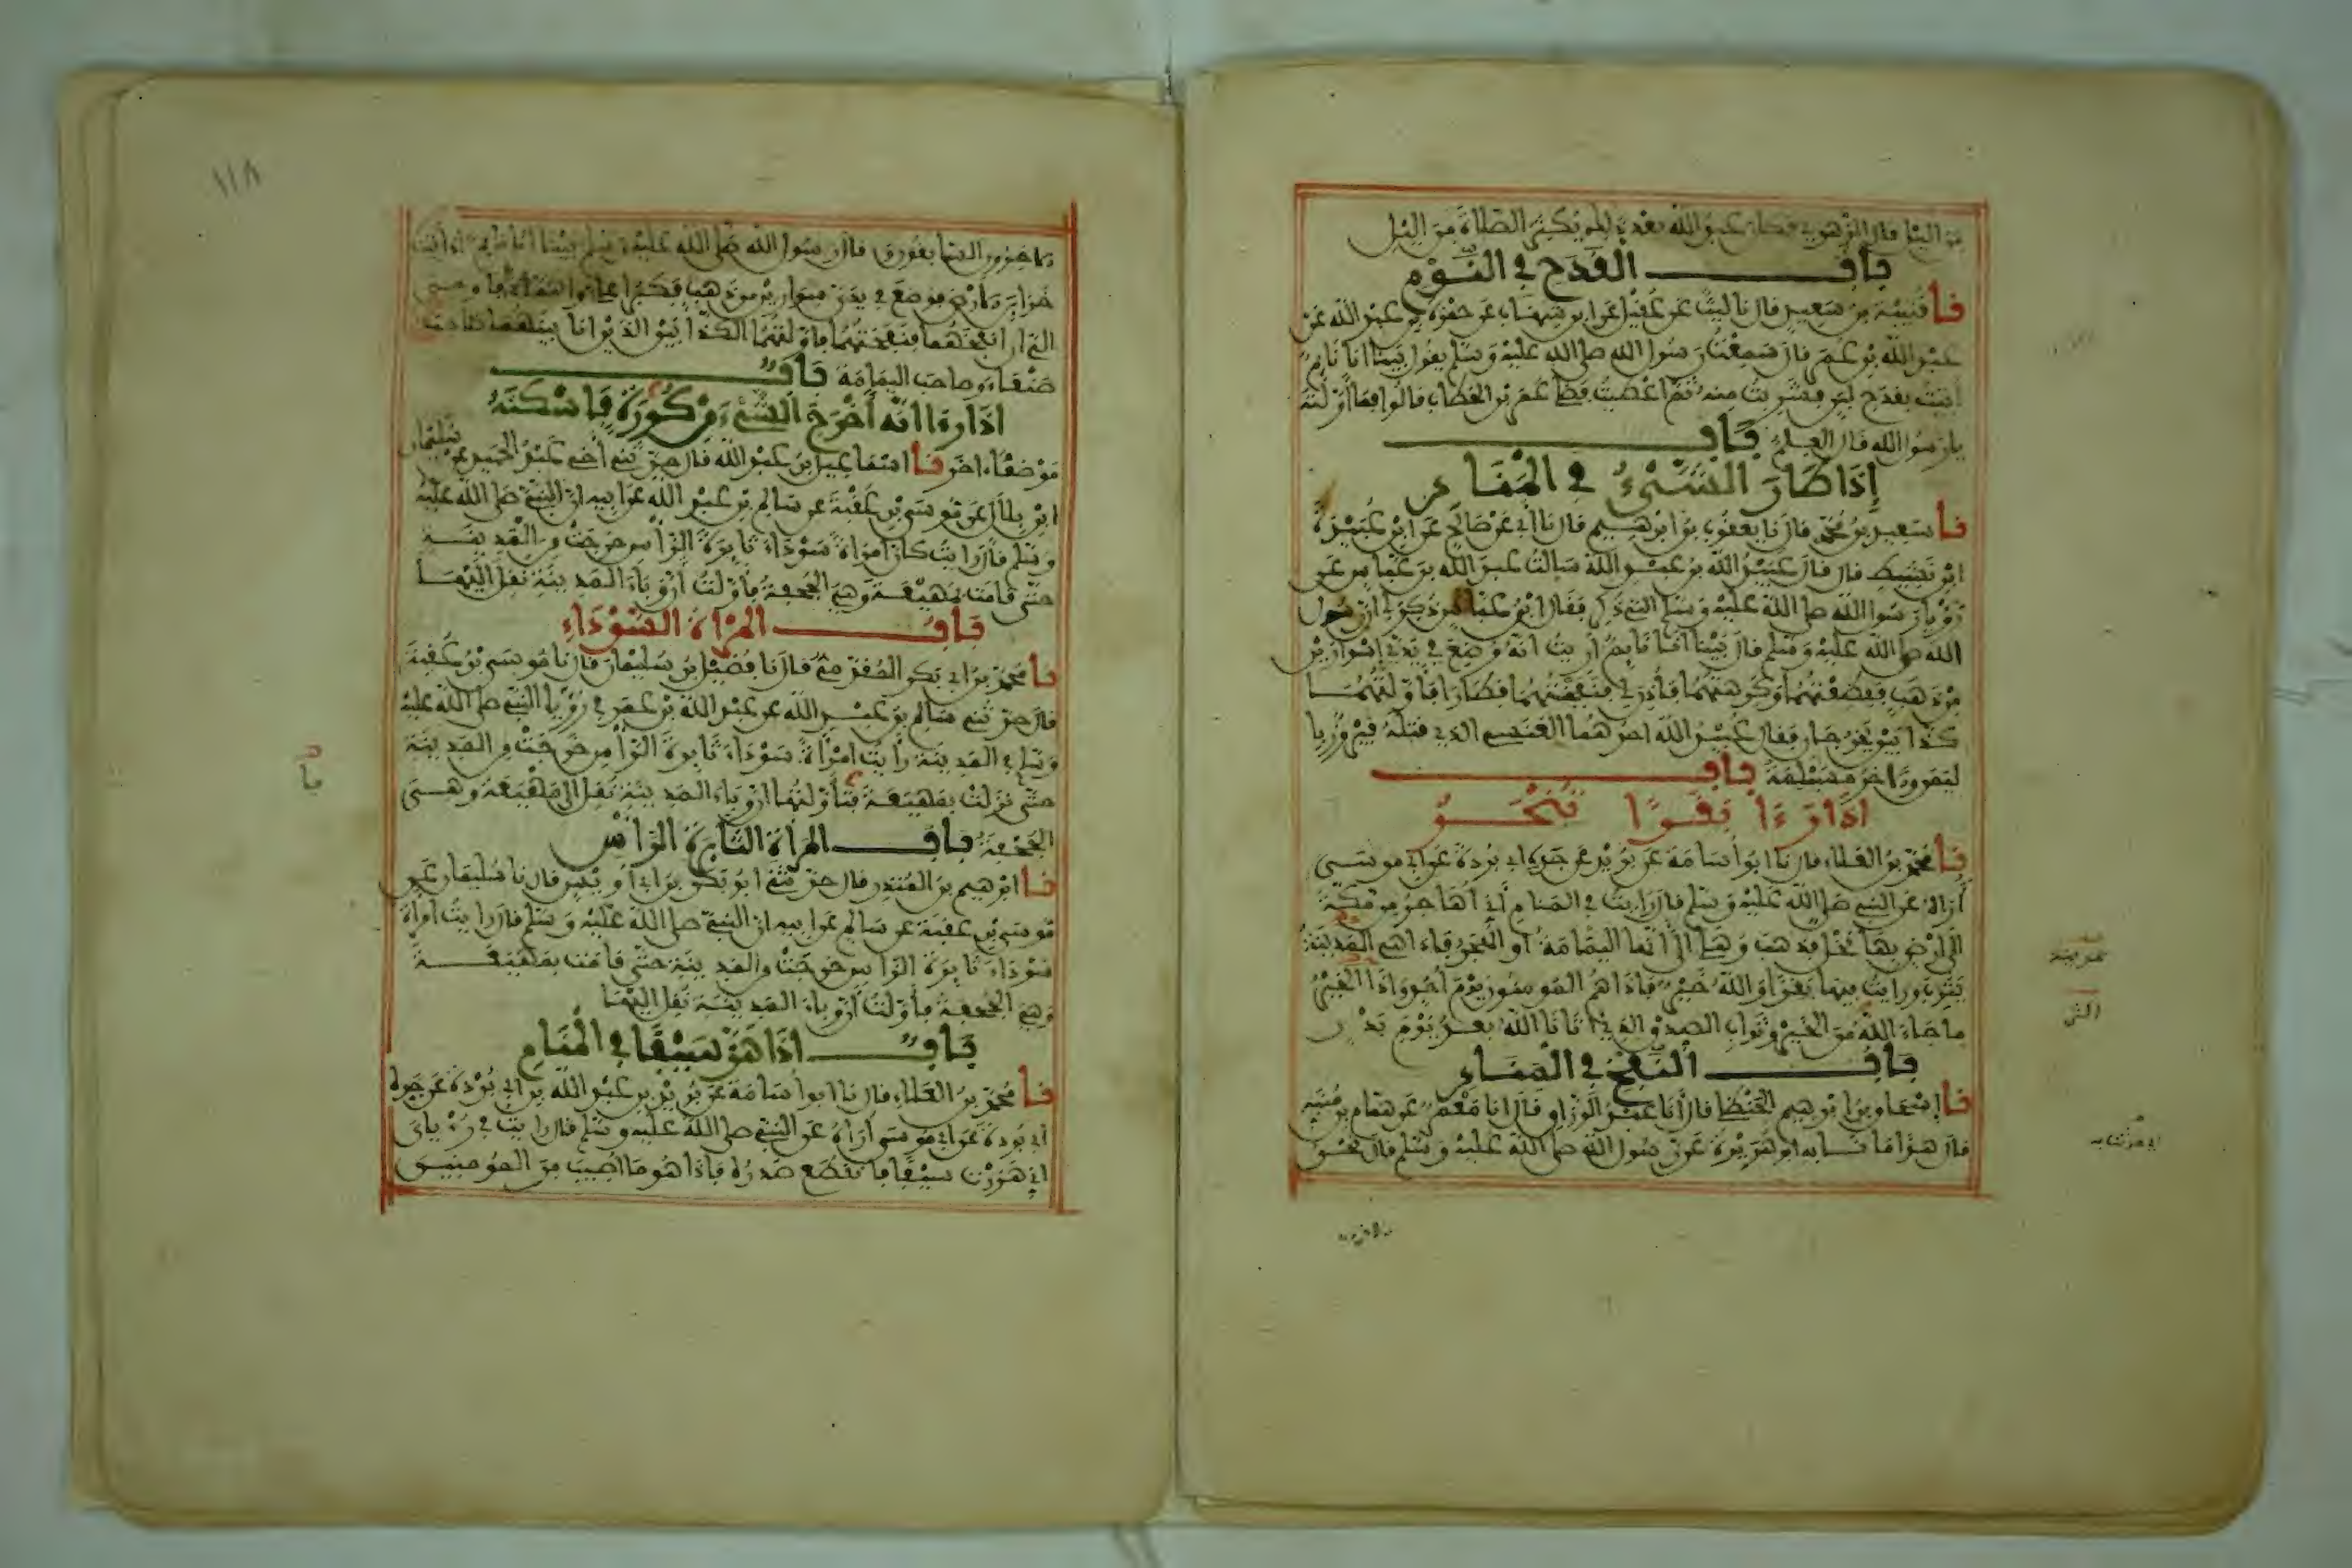 من اليل قال الزهري وكان عبد الله بعد ذلك يكثر الصلاة من اليل
باب القدح في النوم
نا قتيبة بن سعيد قال نا ليث عن عقيل عن ابن شهاب عن حمزة بن عبد الله عن
عبد الله بن عمر قال سمعت رسول الله صلى الله عليه وسلم يقول بينا انا نايم
اتيت بقدح لبن فشربت منه ثم اعطيت فضلي عمر بن الخطاب قالوا فما اولته
يا رسول الله قال العلم باب
إذا طار الشيء في المنام
نا سعيد بن محمد قال نا يعقوب بن ابرهيم قال نا أبي عن صالح عن ابن عبيدة
ابن نشيط قال قال عبيد الله بن عبد الله سالت عبد الله بن عباس عن
رؤيا رسول الله صلى الله عليه وسلم التي ذكر فقال ابن عباس ذكر لي ان رسول
الله صلى الله عليه وسلم قال بينا انا نايم اريت انه وضع في يدي إسوارين
من ذهب ففظعتهما وكرهتهما فأذن لي فنفختهما فطارا فأولتهما
كذابين يخرجان فقال عبيد الله احدهما العنسي الذي قتله فيروز
باليمن والاخر مسيلمة باب
اذا رءا بقرا تنحر
نا محمد بن العلاء قال نا ابو أسامة عن بريد عن جده ابي بردة عن ابي موسى
أراه عن النبي صلى الله عليه وسلم قال رايت في المنام أني أهاجر من مكة
الى ارض بها نخل فذهب وهلي الى انها اليمامة او الهجر فاذا هي المدينة
يثرب ورايت فيها بقرا والله خير فاذا هم المومنون يوم أحد واذا الخير
ما جاء الله من الخير وثواب الصدق الذي اتانا الله بعد يوم بدر
باب النفخ في المنام
نا إسحاق بن ابرهيم الحنظلي قال أنا عبد الرزاق قال انا معمر عن همام بن منبه
قال هذا ما نا به ابو هريرة عن رسول الله صلى الله عليه وسلم قال نحن
الاخرون
١١٨
الاخرون السابقون وقال رسول الله صلى الله عليه وسلم بينا انا نايم اذ اتيت
خزاين الارض فوضع في يدي سواران من ذهب فكبرا علي واهماني فاوحي
الي ان انفخهما فنفختهما فاولتهما الكذابين الذين انا بينهما صاحب
صنعاء وصاحب اليمامة باب
اذا رءا انه أخرج الشيء من كورة فاسكنه
موضعا اخر نا اسماعيل بن عبد الله قال حدثني أخي عبد الحميد عن سليمان
ابن بلال عن موسى بن عقبة عن سالم بن عبد الله عن ابيه ان النبي صلى الله عليه
وسلم قال رايت كان امراة سوداء ثايرة الراس خرجت من المدينة
حتى قامت بمهيعة وهي الجحفة فاولت أن وباء المدينة نقل اليها
باب المراة السوداء
نا محمد بن ابي بكر المقدمي قال نا فضيل بن سليمان قال نا موسى بن عقبة
قال حدثني سالم بن عبد الله عن عبد الله بن عمر في رؤيا النبي صلى الله عليه
وسلم في المدينة رايت امراة سوداء ثايرة الراس خرجت من المدينة
حتى نزلت بمهيعة فتأولتها ان وباء المدينة نقل الى مهيعة وهي
الجحفة باب المراة الثايرة الراس
نا ابرهيم بن المنذر قال حدثني ابو بكر بن ابي أويس قال نا سليمان عن
موسى بن عقبة عن سالم عن ابيه ان النبي صلى الله عليه وسلم قال رايت امراة
سوداء ثايرة الراس خرجت من المدينة حتى قامت بمهيعة
وهي الجحفة فاولت أن وباء المدينة نقل اليها
باب اذا هز سيفا في المنام
نا محمد بن العلاء قال نا ابو أسامة عن بريد بن عبد الله بن ابي بردة عن جده
أبي بردة عن ابي موسى أراه عن النبي صلى الله عليه وسلم قال رايت في رؤياي
اني هززت سيفا فانقطع صدره فاذا هو ما اصيب من المومنين